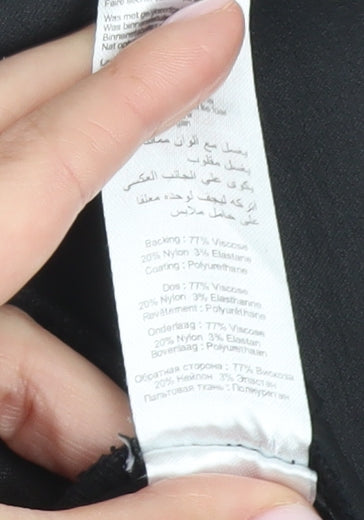 Faire sécher
Was met
Was binn
Binnenste
Nat op
يغسل مع ألوان
يغسل مقلوب
يكوى على الجانب العكسي
اتركه ليجف لوحده معلقا
على حامل ملابس
Backing : 77% Viscose
20% Nylon 3% Elastane
Coating : Polyurethane
Dos : 77% Viscose
20% Nylon 3% Elasthanne
Revêtement : Polyuréthane
Onderlaag : 77% Viscose
20% Nylon 3% Elastan
Bovenlaag : Polyurethaan
Обратная сторона : 77% Вискоза
20% Нейлон 3% Эластан
Пальтовая ткань : Полиуретан